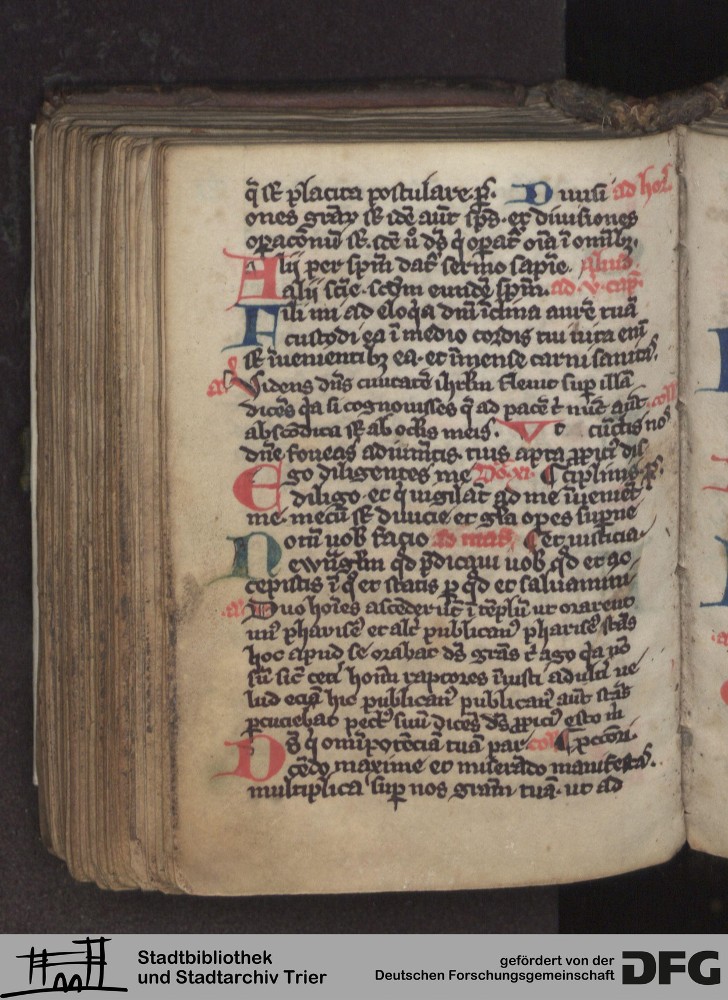 q̄ st̄ placita postulare. p̄. Diuisi ad hor̄.
ones gr̄aꝝ st̄ idē aūt sp̄s. et diuisiones
oꝑac̄onū st̄. idē ū d̄s q̄ oꝑat̄ oīa ī omībꝫ.
Alij per sp̄m dat̄ sermo sapīe. Aliud
alij scīe. scd̄m eundē sp̄m. ad. v. cap̄.
Fili mi ad eloq̄a mea īclina aurē tuā
custodi ea ī medio cordis tui uita enī
st̄ īuenientibꝫ ea. et
Videns dn̄s ciuitatē ihrl̄m fleuit suꝑ illā
dicēs q̄a si cognouisses q̄ ad pacē t̄ nūc aūt coll̄
absc̄odita st̄ ab oclīs meis. Vt cūctis nos
dn̄e foueas
Ego diligentes me Do. xi. ciplīne. p̄.
diligo. et q̄ uigilāt ad me īueniēt
me. mecū st̄ diuicie et gl̄a opes suꝑne
Notū uob̄ facio ad maḡ. et iusticia.
ewāgl̄m qd̄ p̄dicaui uob̄ qd̄ et ac
cepistis ī q̄ et statis ꝑ qd̄ et saluamini
Duo hoīes ascēderūt ī tēplū ut orarent
un᾽ pharise᾽ et alt̄ publican᾽ pharise᾽ stās
hoc apud se orabat d̄s grās t̄ ago q̄a nō
sū sic̄ cet̄i hoīm raptores īiusti adulti ue
lud eciā hic publican᾽ publican᾽ aūt stās
ꝑcuciebat pect᾽ suū dicēs d̄s ꝓpici᾽ esto m̄
Ds̄ q̄ omīpotēciā tuā par coll̄ p̄ctori.
cēdo maxime et miserādo manifestas.
multiplica suꝑ nos gram̄ tuā. ut ad
Stadtbibliothek
und Stadtarchiv Trier
gefördert von der
Deutschen Forschungsgemeinschaft
DFG